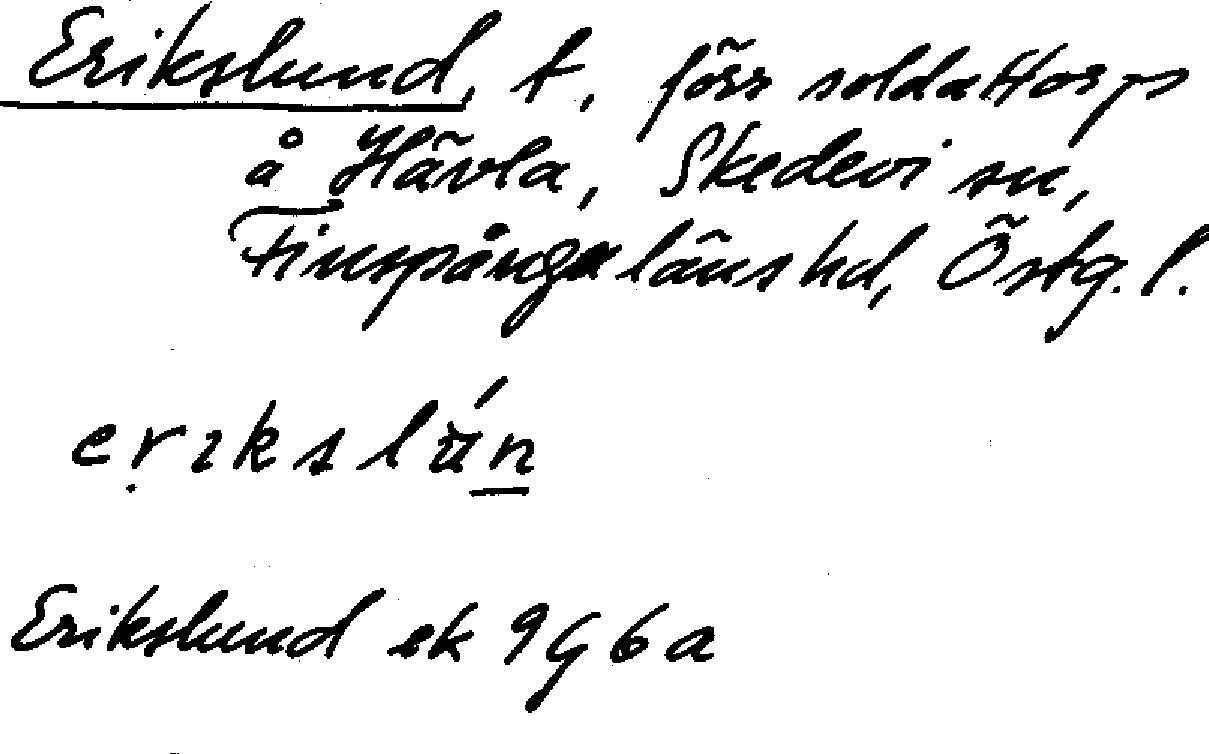 Erikslund, t, förr soldattorp
å Hävla, Skedevi sn,
Finspånga läns hd, Östg. l.
erikslún
Erikslund ek 9G6a